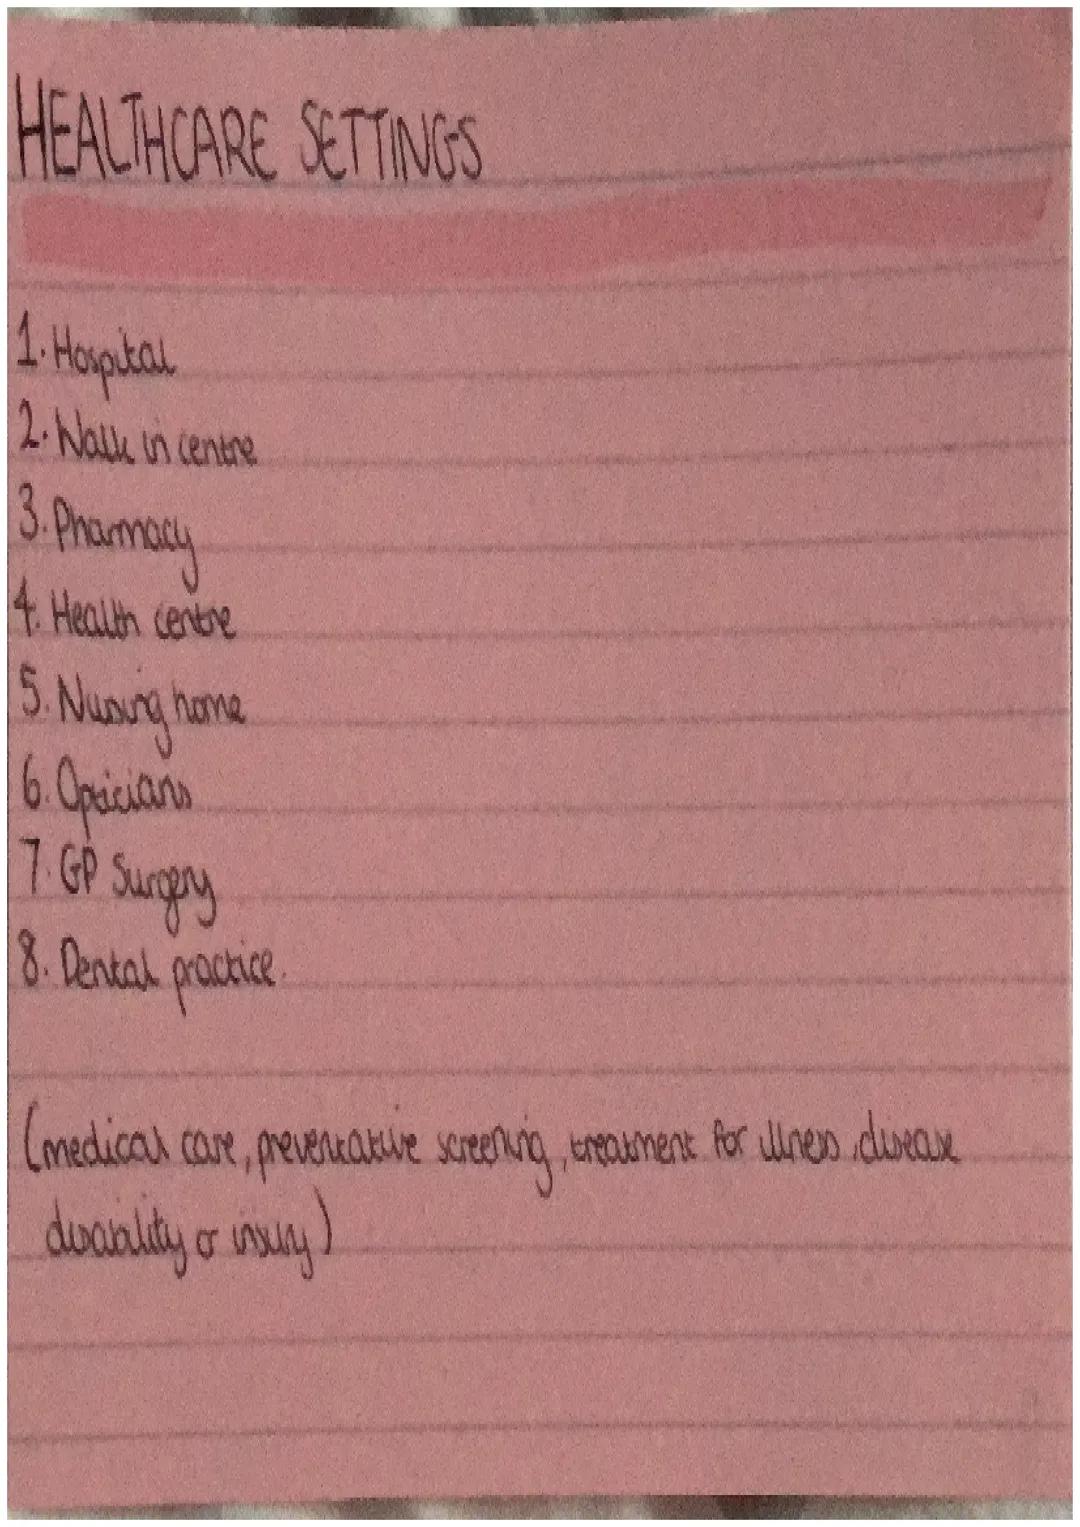 HEALTHCARE SETTINGS
1. Hospital
2. Walk in centre
3. Pharmacy
4. Health centre
5. Nursing home
6. Opticians
7. GP Surgery
8. Dental practice.
(medical care, preventative screening, treatment for illness, disease
disability or injury)